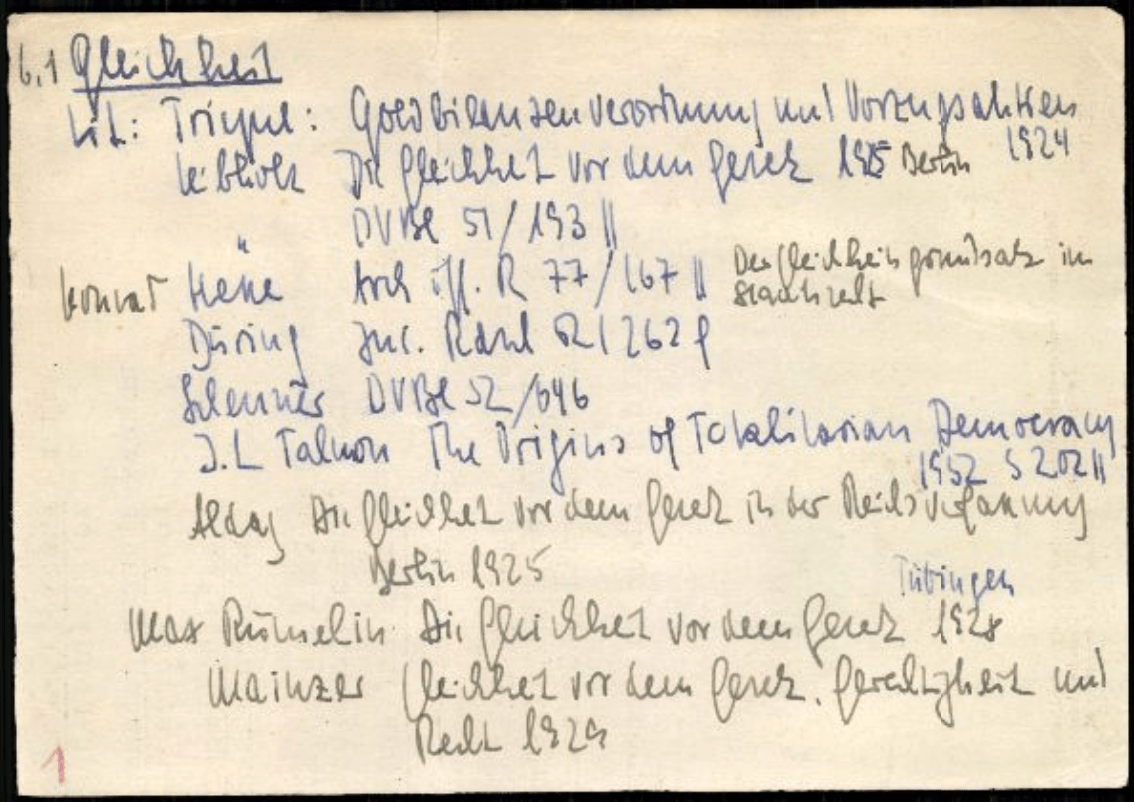 6,1 Gleichheit
Lit.: Triepel: Goldbilanzenverordnung und Vorzugsaktien
1924
Leibholz Die Gleichheit vor dem Gesetz 1925 Berlin
" DVBl 51/193 ||
Konrad Hesse Arch öff. R 77/167 || Der Gleichheitsgrundsatz im
Staatsrecht
Dürig Jur. Rdsch 52/262 f
Scheuner DVBl 52/646
J. L Talmon The Origins of Totalitarian Democracy
1952 S 202 ||
Aldag Die Gleichheit vor dem Gesetz in der Reichsverfassung
Berlin 1925
Tübingen
Max Rümelin Die Gleichheit vor dem Gesetz 1928
Mainzer Gleichheit vor dem Gesetz, Gerechtigkeit und
Recht 1929
1